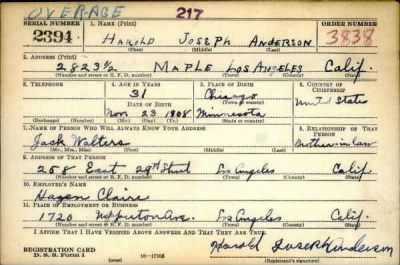 OVER-AGE 217
SERIAL NUMBER 1. NAME (Print) ORDER NUMBER
2394 HAROLD JOSEPH ANDERSON 3838
(First) (Middle) (Last)
2. ADDRESS (Print)
2823½ MAPLE LOS ANGELES Calif.
(Number and street or R. F. D. number) (Town) (County) (State)
3. TELEPHONE 4. AGE IN YEARS 5. PLACE OF BIRTH 6. COUNTRY OF CITIZENSHIP
31 Chicago
DATE OF BIRTH (Town or county) United States
Nov 23 1908 Minnesota
(Exchange) (Number) (Mo.) (Day) (Yr.) (State or country)
7. NAME OF PERSON WHO WILL ALWAYS KNOW YOUR ADDRESS 8. RELATIONSHIP OF THAT PERSON
Jack Walters
(Mr., Mrs., Miss) (First) (Middle) (Last)
9. ADDRESS OF THAT PERSON
258 East 29th Street Los Angeles Calif
(Number and street or R. F. D. number) (Town) (County) (State)
10. EMPLOYER'S NAME
Hagen Claire
11. PLACE OF EMPLOYMENT OR BUSINESS
1720 Ave. Los Angeles Calif.
(Number and street or R. F. D. number) (Town) (County) (State)
I AFFIRM THAT I HAVE VERIFIED ABOVE ANSWERS AND THAT THEY ARE TRUE.
REGISTRATION CARD Harold Joseph Anderson
D. S. S. Form 1 (over) (Registrant's signature)